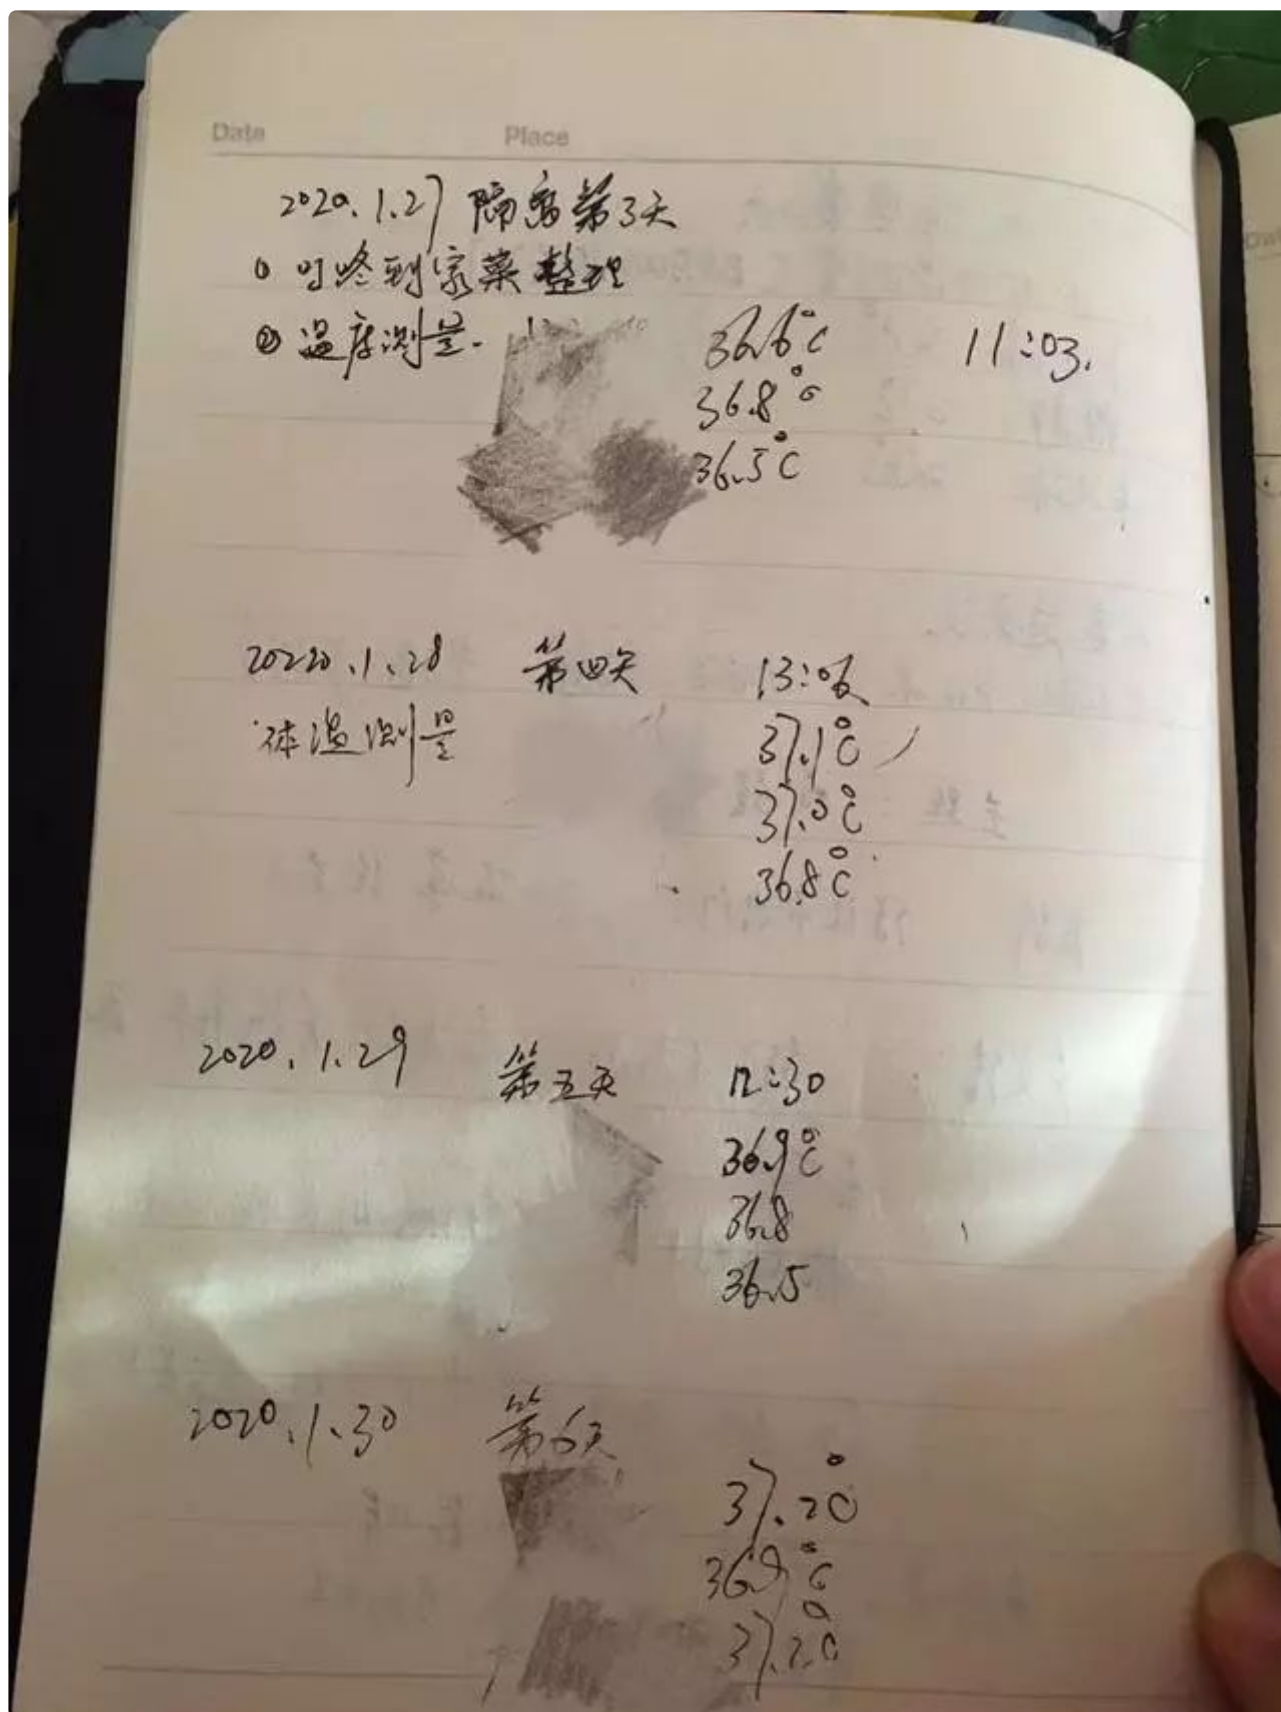 Date Place
2020.1.27 隔离第3天
① 叮咚到家菜整理
② 温度测量. 36.6°C 11:03.
36.8°C
36.5°C
20220.1.28 第四天
体温测量 37.1°C
37.0°C
36.8°C
2020.1.29 第五天 12:30
36.9°C
36.8
36.5
2020.1.30 第6天
37.2°C
36.9°C
37.2°C